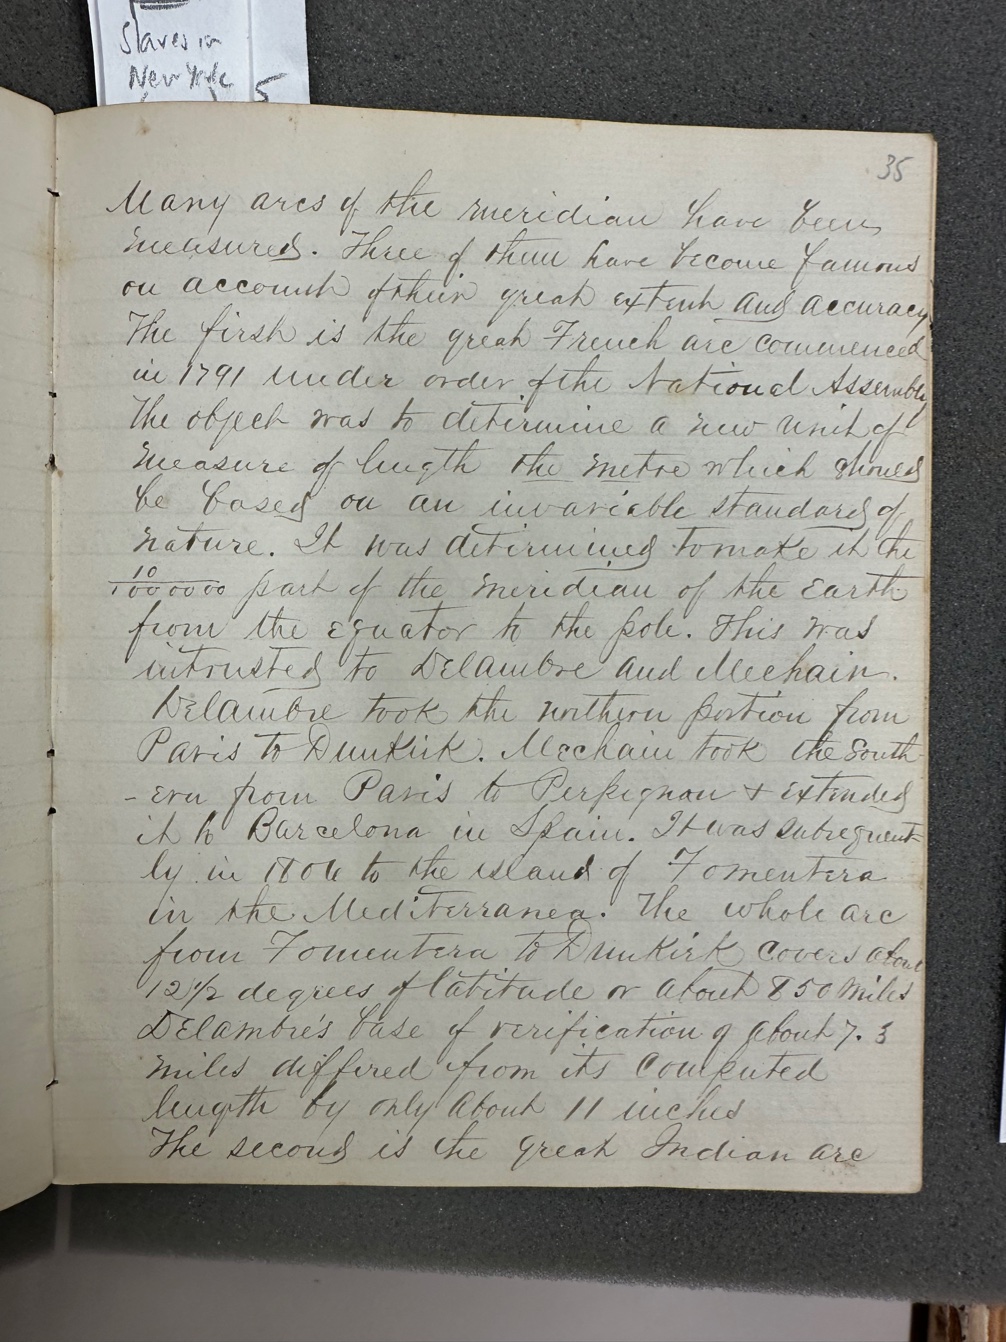 Slaves in
New York
5
35
Many arcs of the meridian have been
measured. Three of them have become famous
on account of their great extent and accuracy
The first is the great French arc commenced
in 1791 under order of the National Assembly
The object was to determine a new unit of
measure of length the metre which should
be based on an invariable standard of
nature. It was determined to make it the
10
10000000 part of the meridian of the Earth
from the Equator to the pole. This was
intrusted to Delambre and Mechain.
Delambre took the northern portion from
Paris to Dunkirk. Mechain took the South
-ern from Paris to Perpignan + extended
it to Barcelona in Spain. It was subsequent
ly in 1806 to the island of Fomentera
in the Mediterranea. The whole arc
from Fomentera to Dunkirk covers about
12 1/2 degrees of latitude or about 850 miles
Delambre's base of verification of about 7.3
miles differed from its computed
length by only about 11 inches
The second is the great Indian arc